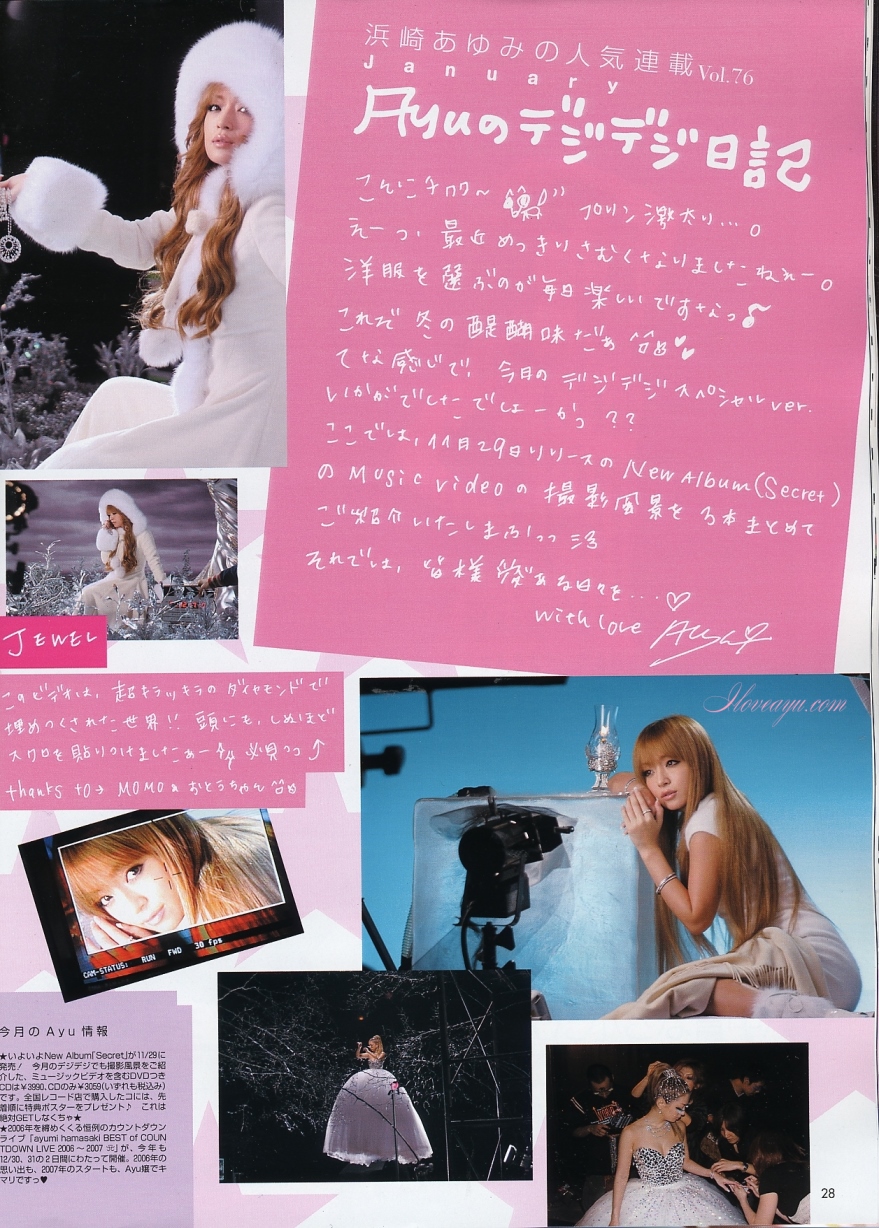 浜崎あゆみの人気連載 Vol.76
January
Ayuのデジデジ日記
こんにチワワ〜 プリン激太り...。
えーっ、最近めっきりさむくなりましたねぇー。
洋服を選ぶのが毎日楽しいですなっ♪
これぞ冬の醍醐味だぁ
てな感じで、今日のデジデジスペシャルver.
いかがでしたでしょーかっ??
ここでは、11月29日リリースのNew Album(Secret)
のMusic videoの撮影風景を3本まとめて
ご紹介いたしまふっっ
それでは、皆様 愛ある日々を...♡
with love Ayu
JEWEL
このビデオは、超キラッキラのダイヤモンドで
埋めつくされた世界!! 頭にも、しぬほど
スワロを貼りつけましたぁー 必見っっ↑
thanks to→MOMOのおとうちゃん
Iloveayu.com
CAM-STATUS: RUN FWD 30 fps
今月のAyu情報
★いよいよNew Album「Secret」が11/29に
発売! 今月のデジデジでも撮影風景をご紹
介した、ミュージックビデオを含むDVDつき
CDは¥3990、CDのみ¥3059(いずれも税込み)
です。全国レコード店で購入したコには、先
着順に特典ポスターをプレゼント♪ これは
絶対GETしなくちゃ★
★2006年を締めくくる恒例のカウントダウン
ライブ「ayumi hamasaki BEST of COUN
TDOWN LIVE 2006〜2007 」が、今年も
12/30、31の2日間にわたって開催。2006年の
思い出も、2007年のスタートも、Ayu嬢でキ
マリですっ♥
28